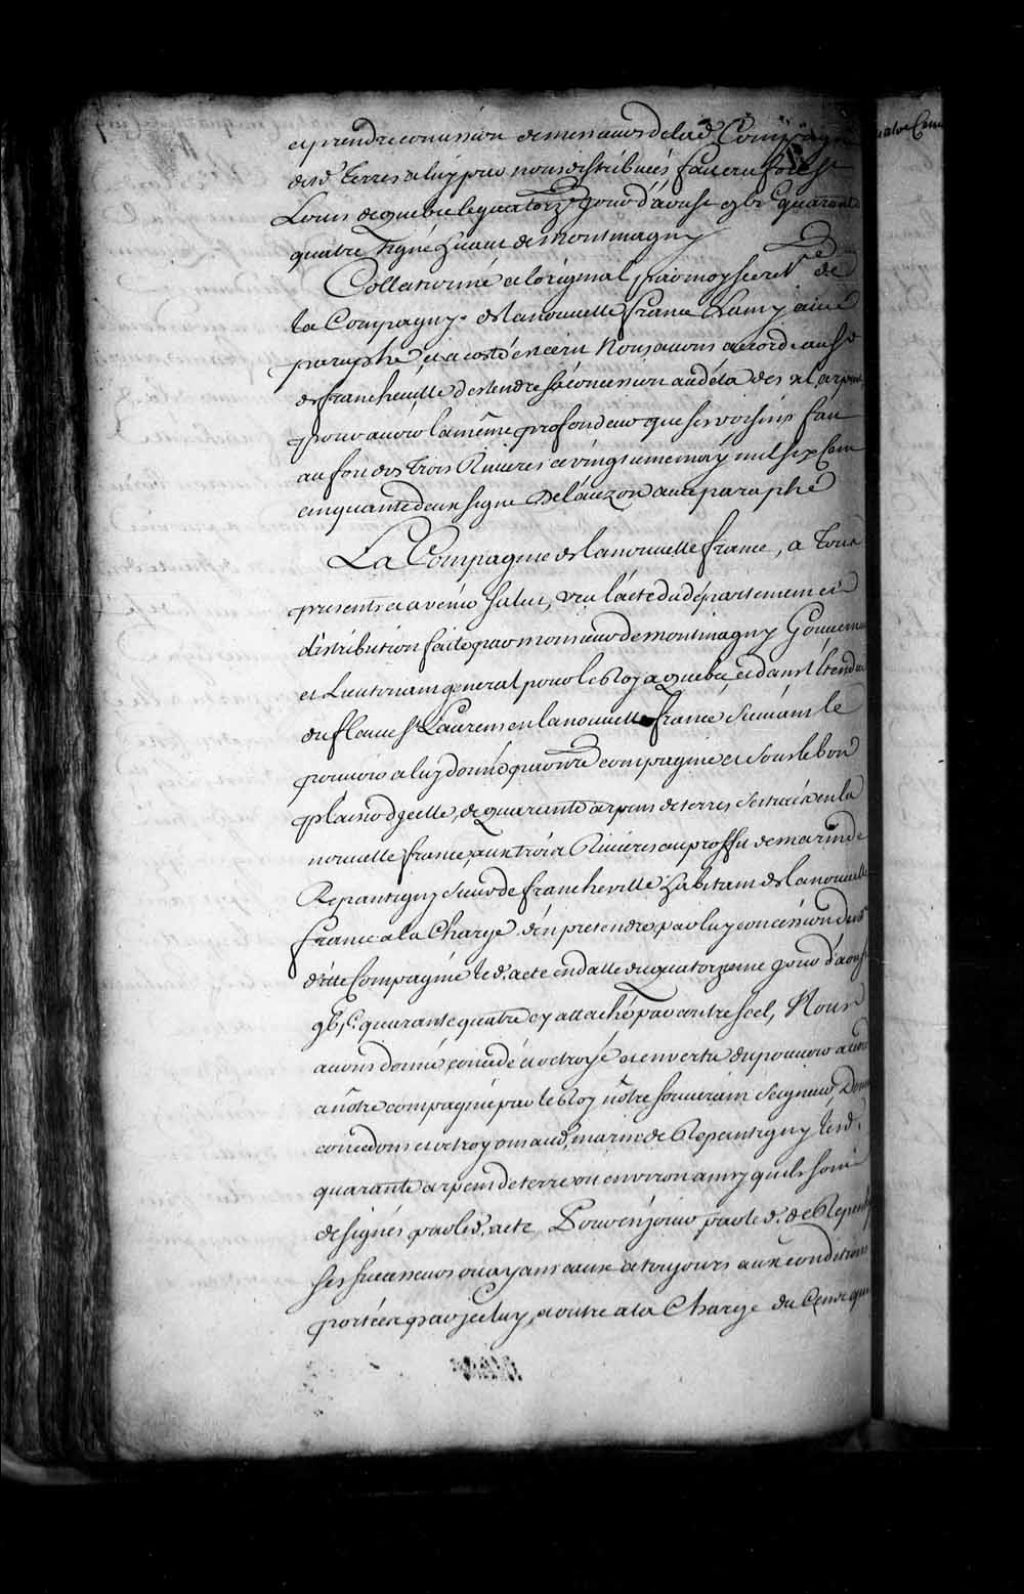 et prendre concession de messieurs de la d. Compagnie
desd. Terres a luy par nous distribuées fait au fort St
Louis de quebec le quatorze. Jour d'aoust gbic quarante
quatre signé huault de Montmagny
Collationné a l'original par moy secret.re de
la Compagnye de la nouvelle france Lamy ainé
paraphé et a costé est écrit Nous avons accordé au Sr
de francheville d'estendre sa concession audela des xl arpens
pour avoir la même profondeur que ses voisins fait
au fort des Trois Rivieres ce vingtieme may mil six Cent
cinquante deux signe De lauzon avec paraphe
La Compagnie de la nouvelle france, a Tous
presents et a venir salut, veu l'acte du département et
distribution faite par monsieur de montmagny Gouverneur
et Lieutenant general pour le Roy a quebec, et dans l'étendue
du fleuve St Laurens en la nouvelle france suivant le
pouvoir a luy donné par nôtre compagnie et sous le bon
plaisir d'ycelle, de quarante arpens de terres scituées en la
nouvelle france, aux trois Rivieres au proffit de marin de
Repantigny sieur de francheville habitant de la nouvelle
france a la Charge d'en prendre par luy concession de nre
d'ite Compagnie led. acte en datte du quatorzieme jour d'aoust
gbic quarante quatre cy attaché par contre scel, Nous
avons donné, concedé et octroyé et en vertu du pouvoir
a nôtre compagnie par le Roy nôtre souverain Seigneur, Donnons
concedons et octroyons aud. marin de Repentigny lesd.
quarante arpens de terre ou environ ainsy quils sont
designés par led. acte Pour en jouir par led. de Repentigny
ses successeurs ou ayans cause a toujours aux conditions
portées par jceluy, et outre a la Charge du Cens que